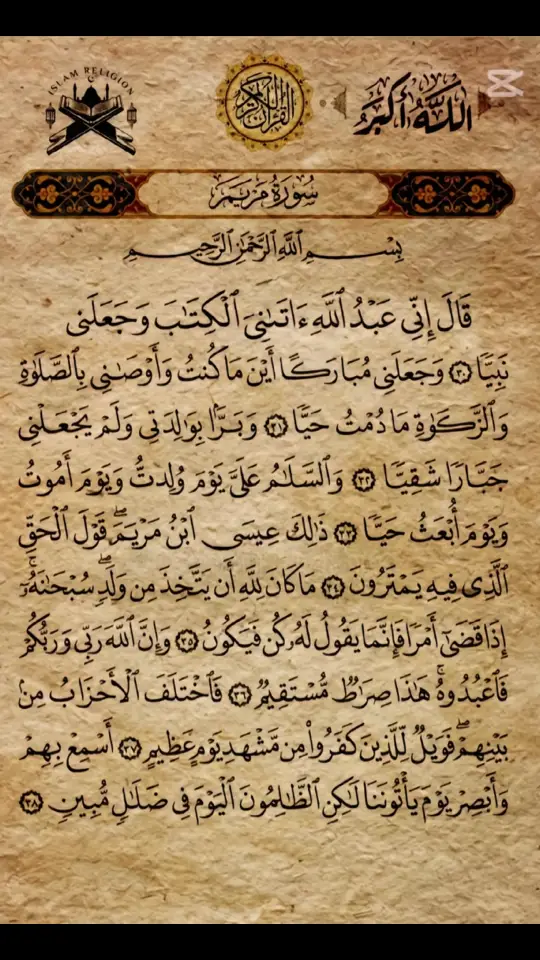 ISLAM RELIGION
القرآن الكريم
اللَّهُ أَكْبَر
سُورَةُ مَرْيَمَ
بِسْمِ ٱللَّهِ ٱلرَّحْمَٰنِ ٱلرَّحِيمِ
قَالَ إِنِّى عَبْدُ ٱللَّهِ ءَاتَىٰنِىَ ٱلْكِتَٰبَ وَجَعَلَنِى
نَبِيًّا ٣٠ وَجَعَلَنِى مُبَارَكًا أَيْنَ مَا كُنتُ وَأَوْصَٰنِى بِٱلصَّلَوٰةِ
وَٱلزَّكَوٰةِ مَا دُمْتُ حَيًّا ٣١ وَبَرًّۢا بِوَٰلِدَتِى وَلَمْ يَجْعَلْنِى
جَبَّارًا شَقِيًّا ٣٢ وَٱلسَّلَٰمُ عَلَىَّ يَوْمَ وُلِدتُّ وَيَوْمَ أَمُوتُ
وَيَوْمَ أُبْعَثُ حَيًّا ٣٣ ذَٰلِكَ عِيسَى ٱبْنُ مَرْيَمَ ۖ قَوْلَ ٱلْحَقِّ
ٱلَّذِى فِيهِ يَمْتَرُونَ ٣٤ مَا كَانَ لِلَّهِ أَن يَتَّخِذَ مِن وَلَدٍ ۖ سُبْحَٰنَهُۥٓ ۚ
إِذَا قَضَىٰٓ أَمْرًا فَإِنَّمَا يَقُولُ لَهُۥ كُن فَيَكُونُ ٣٥ وَإِنَّ ٱللَّهَ رَبِّى وَرَبُّكُمْ
فَٱعْبُدُوهُ ۚ هَٰذَا صِرَٰطٌ مُّسْتَقِيمٌ ٣٦ فَٱخْتَلَفَ ٱلْأَحْزَابُ مِنۢ
بَيْنِهِمْ ۖ فَوَيْلٌ لِّلَّذِينَ كَفَرُوا۟ مِن مَّشْهَدِ يَوْمٍ عَظِيمٍ ٣٧ أَسْمِعْ بِهِمْ
وَأَبْصِرْ يَوْمَ يَأْتُونَنَا لَٰكِنِ ٱلظَّٰلِمُونَ ٱلْيَوْمَ فِى ضَلَٰلٍ مُّبِينٍ ٣٨